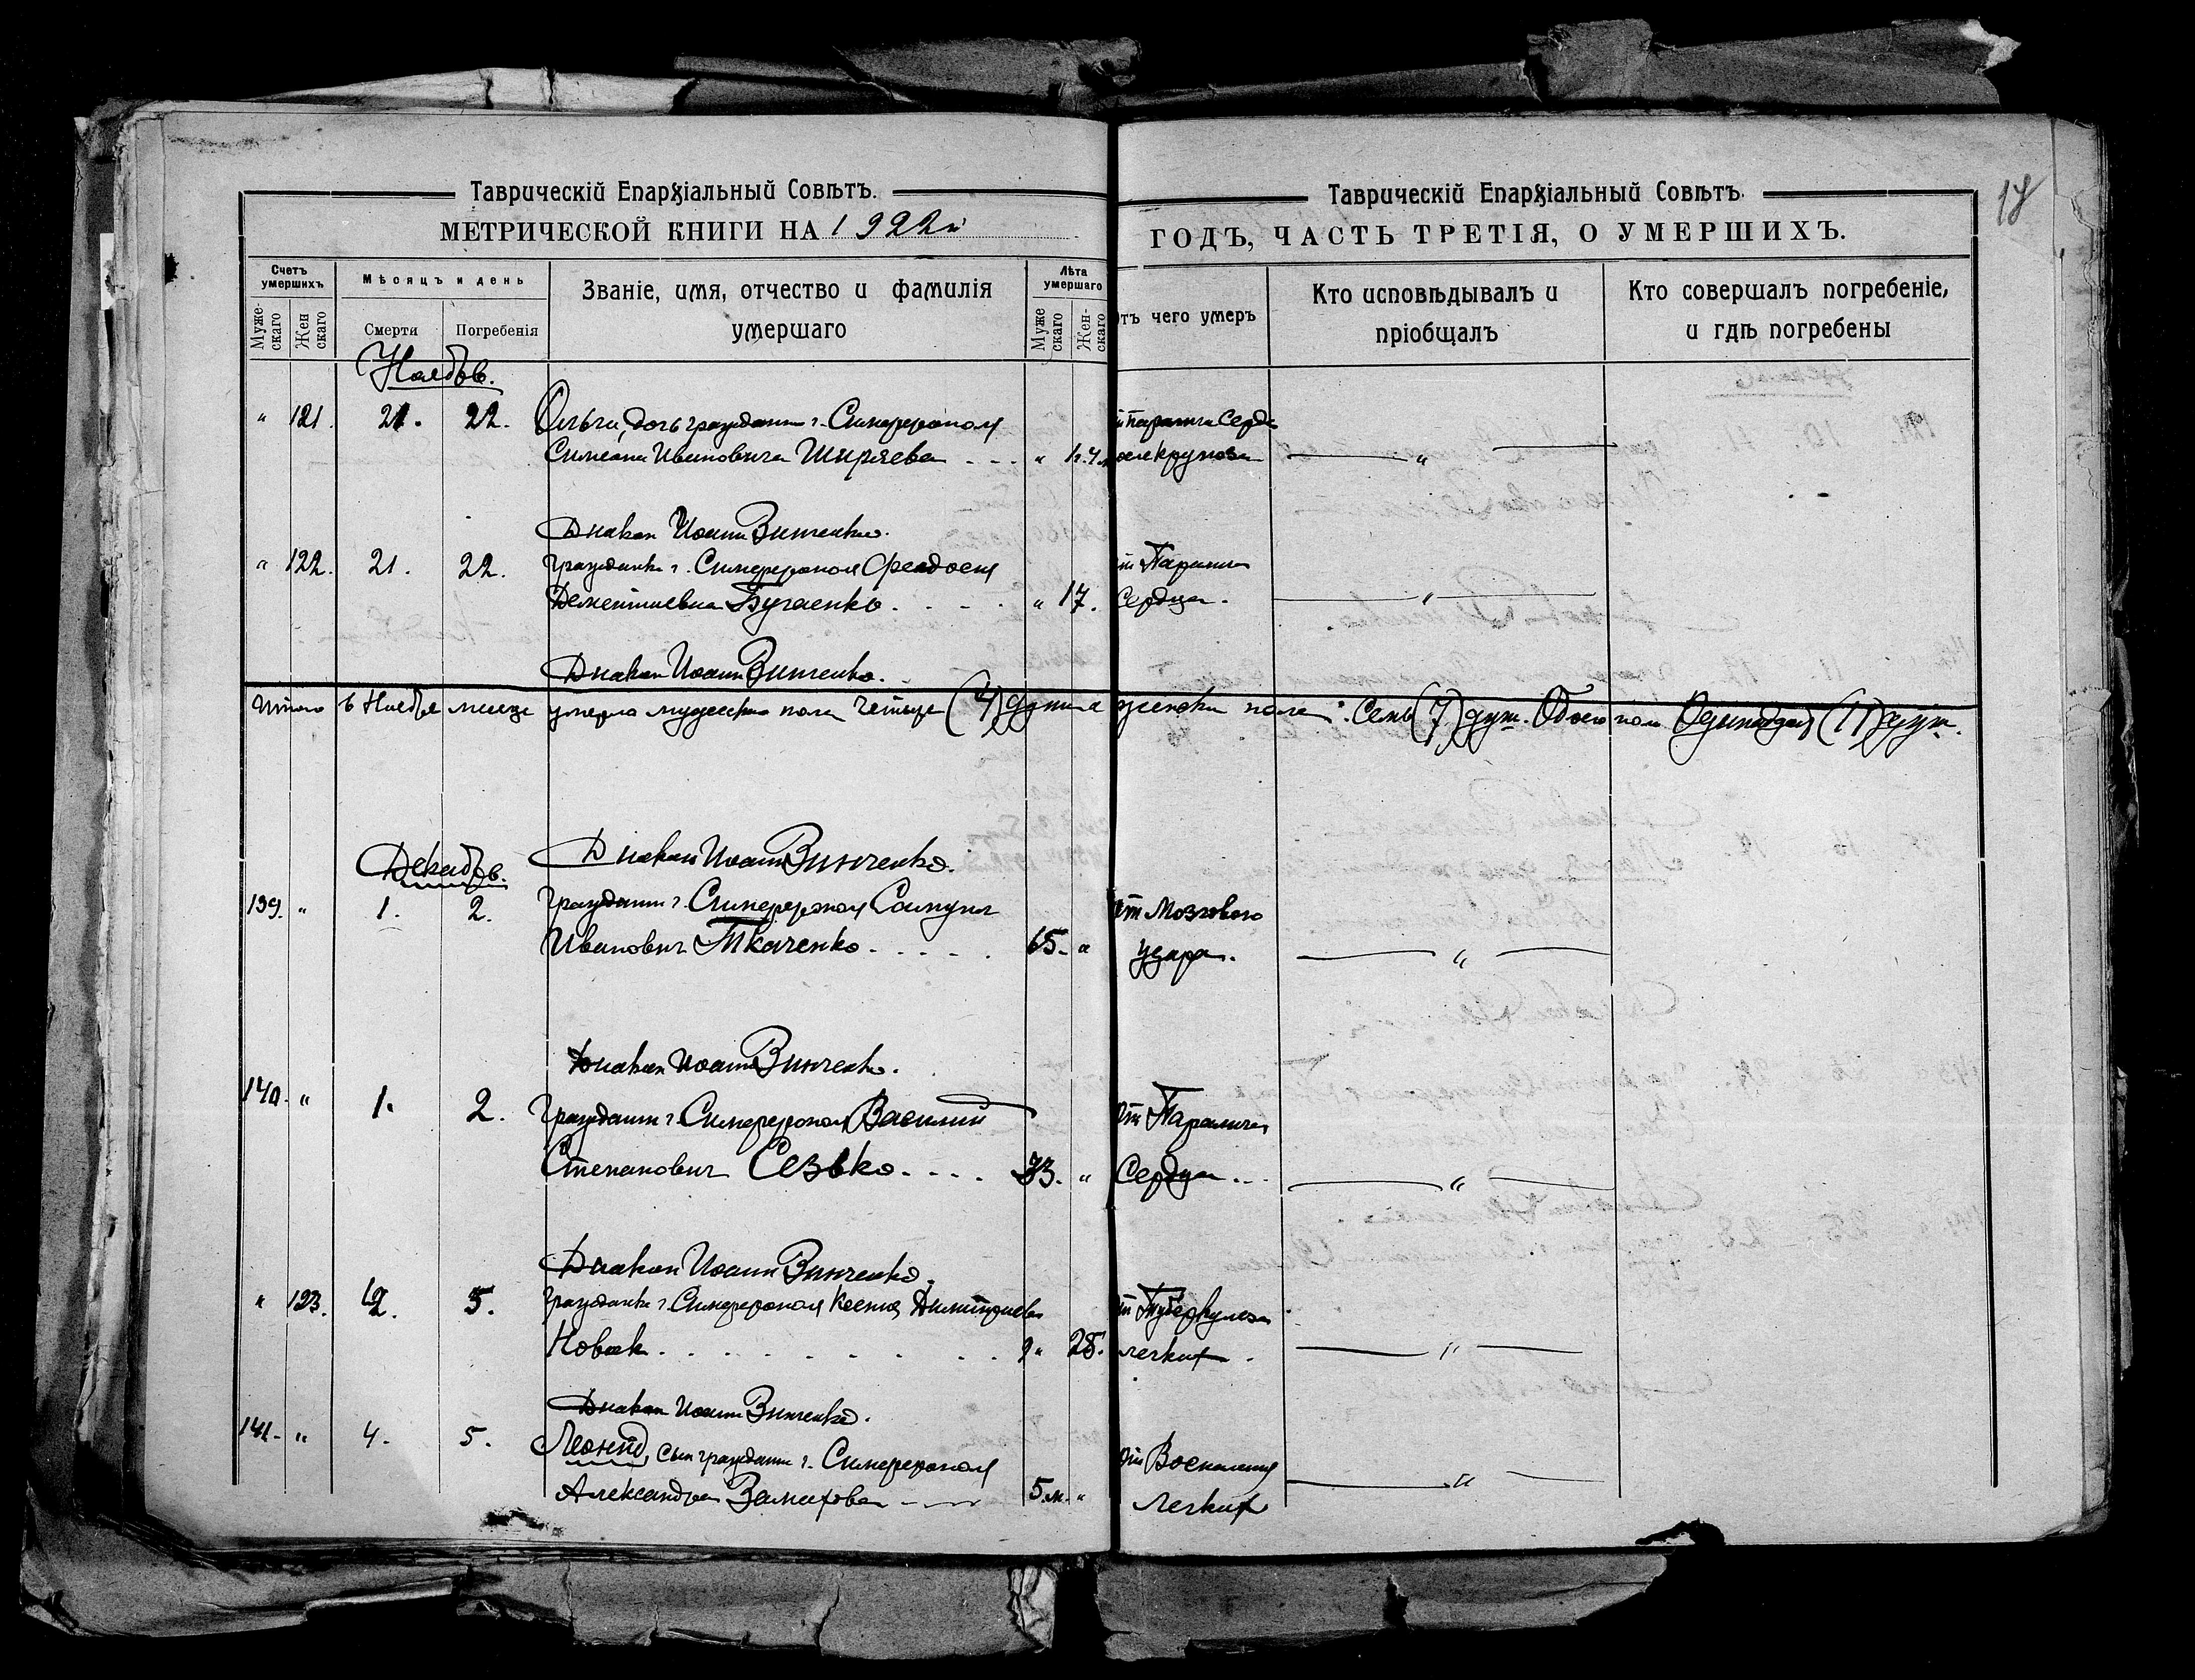 Таврическій Епархіальный Совѣтъ.
МЕТРИЧЕСКОЙ КНИГИ НА 1922й
Счетъ умершихъ
Муже-скаго
Жен скаго
Мѣсяцъ и день
Смерти
Погребенія
Званіе, имя, отчество и фамилія
умершаго
Лѣта умершаго
Муже скаго
Жен-скаго
Таврическій Епархіальный Совѣтъ.
18
ГОДЪ, ЧАСТЬ ТРЕТІЯ, О УМЕРШИХЪ.
отъ чего умеръ
Кто исповѣдывалъ и
пріобщалъ
Кто совершалъ погребеніе,
и гдѣ погребены
Ноябрь.
" 121. 21. 22. Ольга, дочь гражданин г. Симферополя
Симеона Ивановича Ширяева
Паралича Сердца
после крупоза "
Диакон Иоанн Винченко.
" 122. 21. 22. Гражданка г. Симферополя Феодосия
Дементиевна Бугаенко. " 17.
от Паралича
Сердца. "
Диакон Иоанн Винченко.
Итого в Ноябре месяце умерло мужеска пола четыре (4) души а женска пола: Семь (7) душ. Обоего пола Одинадцать (11) душ.
Диакон Иоанн Винченко.
Декабрь.
139. " 1. 2. Гражданин г. Симферополя Самуил
Иванович Ткаченко. 65. "
от Мозгового
удара. "
Диакон Иоанн Винченко.
140. " 1. 2. Гражданин г. Симферополя Василий
Степанович Сезько. 33. "
от Паралича
Сердца. "
Диакон Иоанн Винченко.
" 123. 2. 5. Гражданка г. Симферополя Ксения Димитриевна
Новак. " 28.
от Туберкулеза
легких. "
Диакон Иоанн Винченко.
141. " 4. 5. Леонид, сын гражданина г. Симферополя
Александра 5 м. "
от Воспаления
Легких "